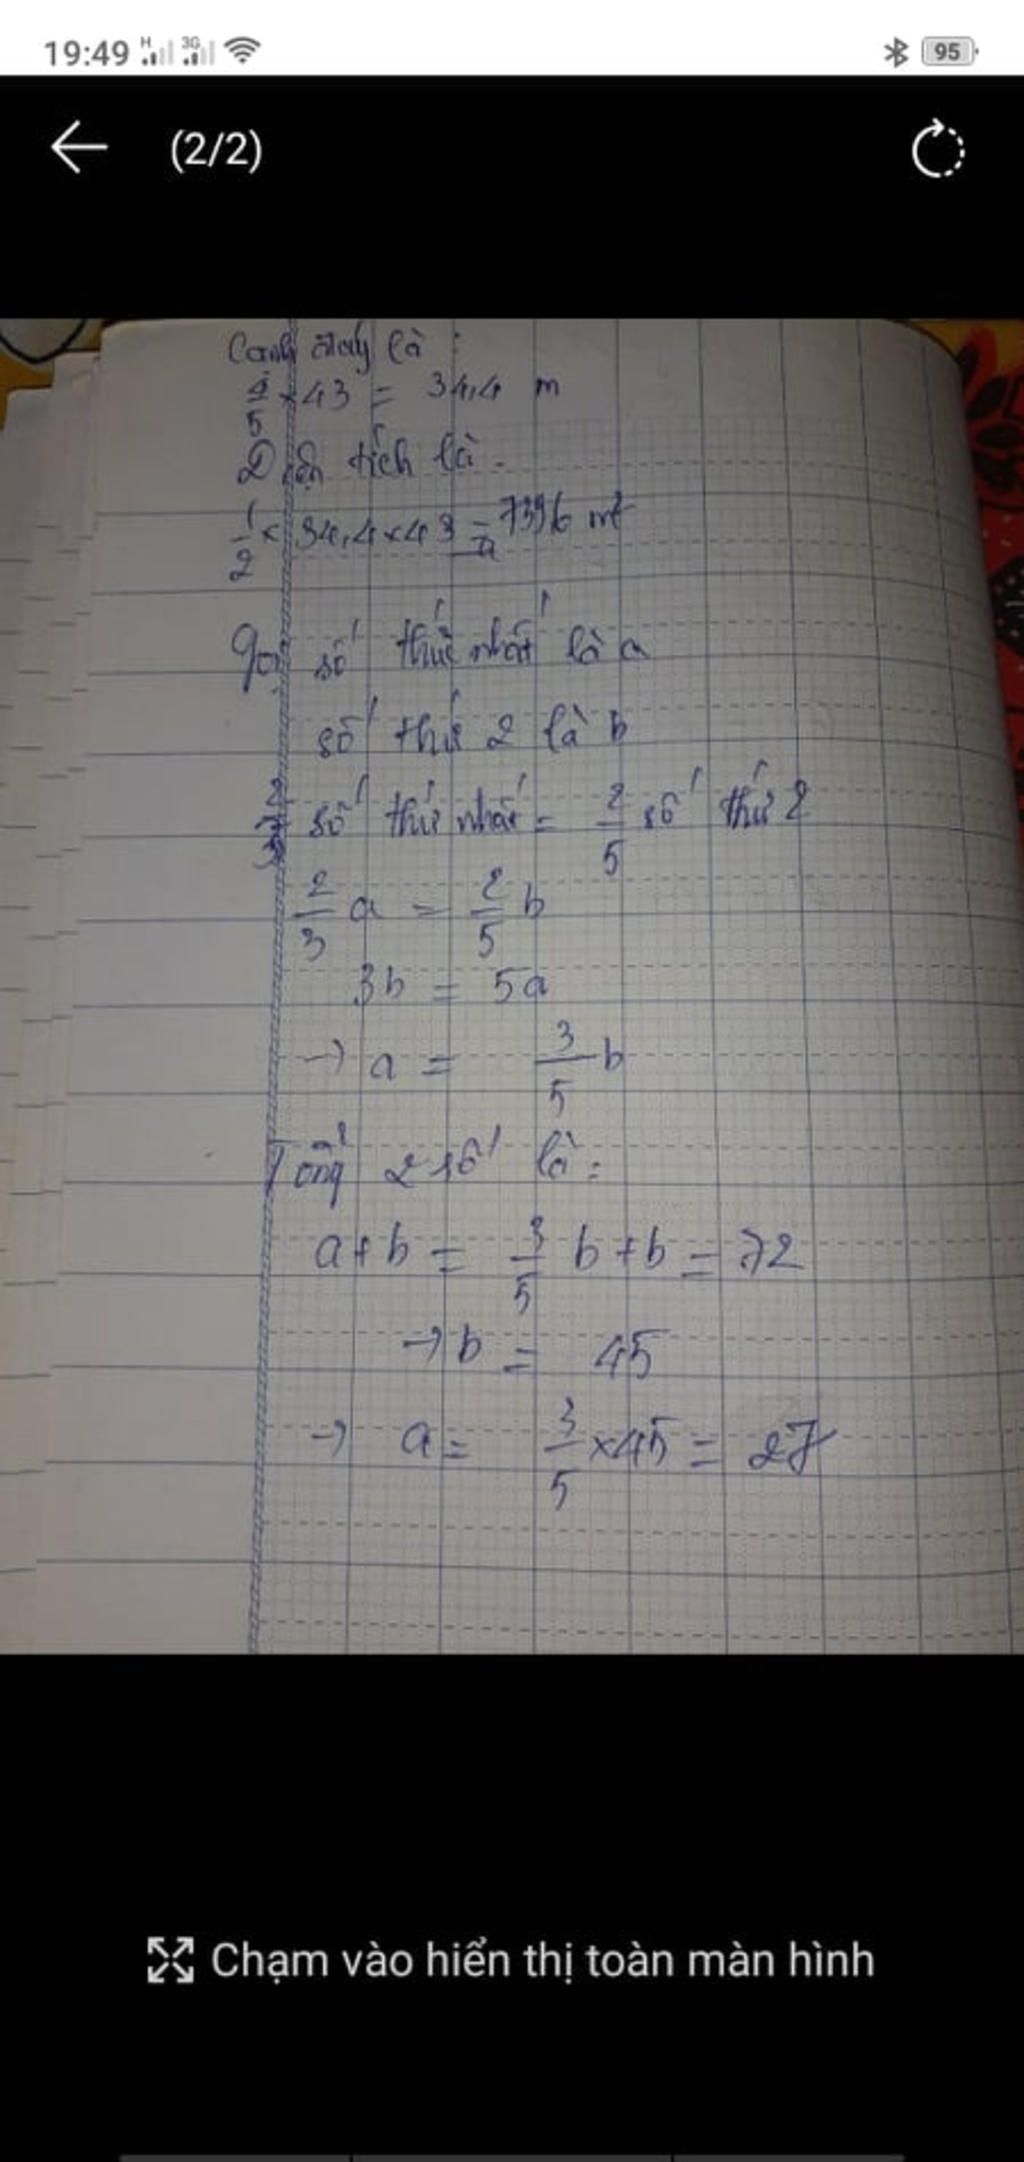 19:49 H 3G 95
(2/2)
Cạnh đáy là :
4/5 × 43 = 34,4 m
Diện tích là.
1/2 × 34,4 × 43 = 739,6 m²
Gọi số thứ nhất là a
số thứ 2 là b
2/3 số thứ nhất = 2/5 số thứ 2
2/3 a = 2/5 b
3b = 5a
→ a = 3/5 b
Tổng 2 số là :
a+b = 3/5 b + b = 72
→ b = 45
→ a = 3/5 × 45 = 27
Chạm vào hiển thị toàn màn hình